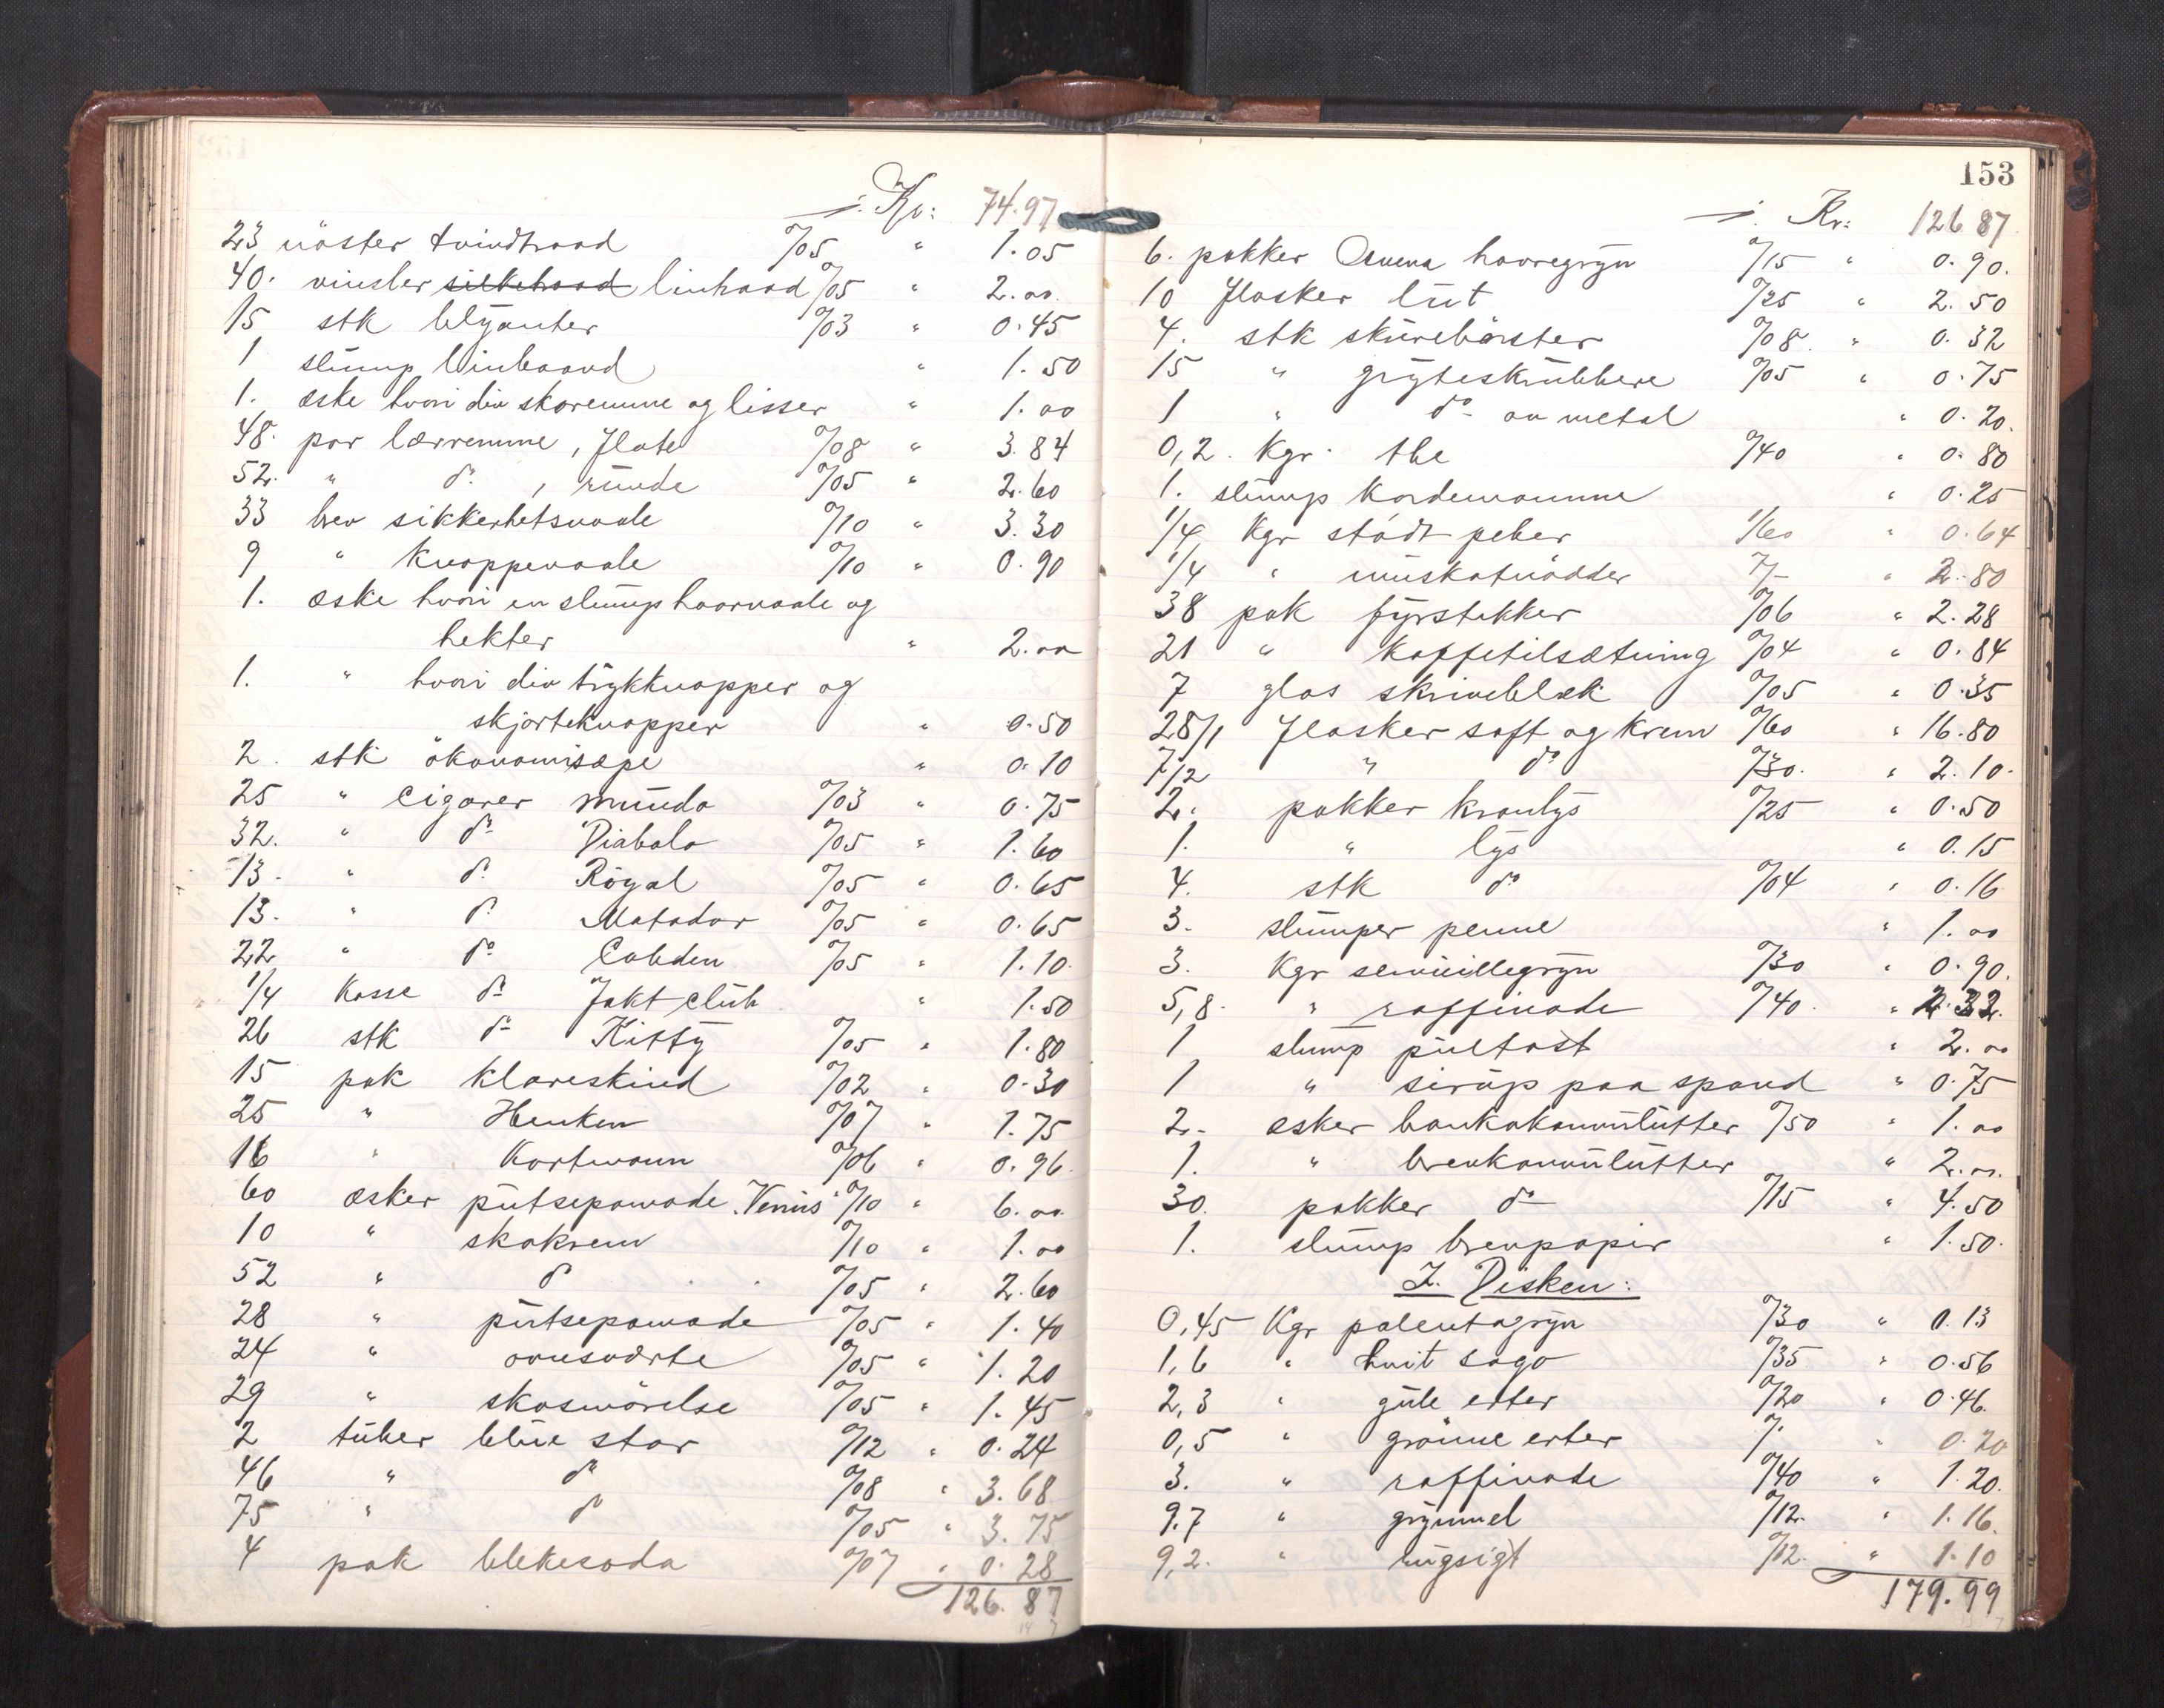 ÷. Kr: 74.97
23 nöster tvindtraad º/05 " 1.05
40. vinsler silketraad lintraad º/05 " 2.00
15 stk blyanter º/03 " 0.45
1 slump linbaand " 1.50
1. æske hvori div skoremme og lisser " 1.00
48. par lærremme, flate º/08 " 3.84
52. " dº, runde º/05 " 2.60
33 brev sikkerhetsnaale º/10 " 3.30
9 " knappenaale º/10 " 0.90
1. æske hvori en slump haarnaale og
hekter " 2.00
1. " hvori div trykknapper og
skjorteknapper " 0.50
2. stk ökonomisæpe " 0.10
25 " Cigarer Mundo º/03 " 0.75
32. " dº Diabolo º/05 " 1.60
13. " dº Royal º/05 " 0.65
13. " dº Matador º/05 " 0.65
22 " dº Cobden º/05 " 1.10
1/4 kasse dº Jakt club " 1.50
26 stk dº Kitty º/05 " 1.80
15 pak klareskind º/02 " 0.30
25 " Henken º/07 " 1.75
16 " Kortmann º/06 " 0.96
60 æsker putsepomade "Venus" º/10 " 6.00
10 " skokrem º/10 " 1.00
52 " dº º/05 " 2.60
28 " putsepomade º/05 " 1.40
24 " ovnsværte º/05 " 1.20
29 " skosmörelse º/05 " 1.45
2 tuber blue star º/12 " 0.24
46 " dº º/08 " 3.68
75 " dº º/05 " 3.75
4 pak blekesoda º/07 " 0.28
126.87
153
÷. Kr: 126.87
6. pakker havregryn º/15 " 0.90.
10 flasker lut º/25 " 2.50
4. stk skurebörster º/08 " 0.32
15 " gryteskrubbere º/05 " 0.75
1 " dº av metal " 0.20.
0,2. Kgr. the º/40 " 0.80
1. slump kardemomme " 0.25
1/4 Kgr stödt peber 1/60 " 0.64
1/4 " muskatnödder 7/- " 2.80
38 pak fyrstikker º/06 " 2.28
21 " kaffetilsætning º/04 " 0.84
7 glas skriveblæk º/05 " 0.35
28/1 flasker saft og krem º/60 " 16.80
7/2 " dº º/30. " 2.10.
2. pakker kronlys º/25 " 0.50
1. " lys " 0.15
4. stk dº º/04 " 0.16
3. slumper penne " 1.00
3. Kgr semuillegryn º/30 " 0.90.
5,8. " raffinade º/40. " 2.32.
1 slump pultost " 2.00
1 " sirup paa spand " 0.75
2. æsker bankakonvulutter º/50 " 1.00
1. " brevkonvulutter " 2.00.
30. pakker dº º/15 " 4.50
1. slump brevpapir " 1.50.
I. Disken:
0,45 Kgr polentagryn º/30 " 0.13
1,6 " hvit sago º/35 " 0.56
2,3 " gule erter º/20 " 0.46.
0,5 " grönne erter º/. " 0.20
3. " raffinade º/40 " 1.20.
9.7 " grynmel º/12. " 1.16.
9,2. " rugsigt º/12. " 1.10
179.99